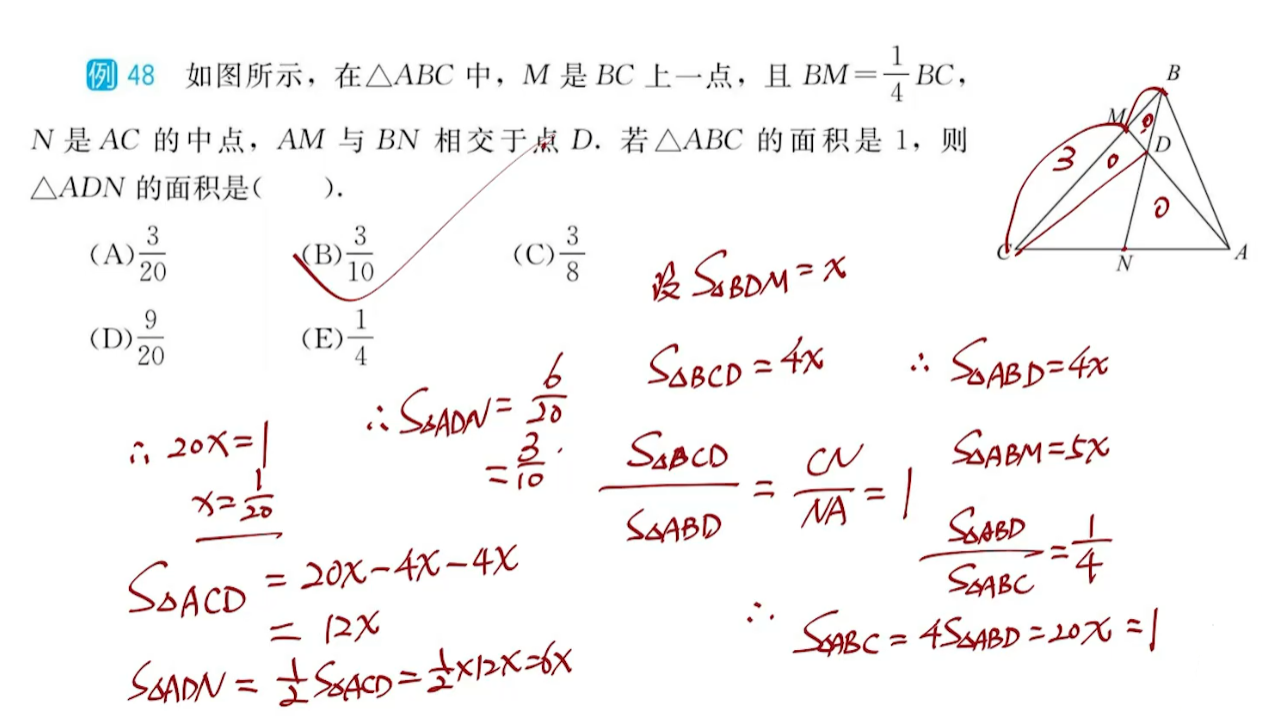 例 48 如图所示，在△ABC 中，M 是 BC 上一点，且 BM=\frac{1}{4}BC，
N 是 AC 的中点，AM 与 BN 相交于点 D．若△ABC 的面积是 1，则
△ADN 的面积是(　　)．
(A) \frac{3}{20} (B) \frac{3}{10} (C) \frac{3}{8}
(D) \frac{9}{20} (E) \frac{1}{4}
B
M
D
3
C
N
A
设 S△BDM = x
S△BCD = 4x ∴ S△ABD = 4x
\frac{S△BCD}{S△ABD} = \frac{CN}{NA} = 1
S△ABM = 5x
\frac{S△ABD}{S△ABC} = \frac{1}{4}
∴ S△ABC = 4S△ABD = 20x = 1
∴ 20x = 1
x = \frac{1}{20}
∴ S△ADN = \frac{6}{20}
= \frac{3}{10}.
S△ACD = 20x - 4x - 4x
= 12x
S△ADN = \frac{1}{2} S△ACD = \frac{1}{2} × 12x = 6x